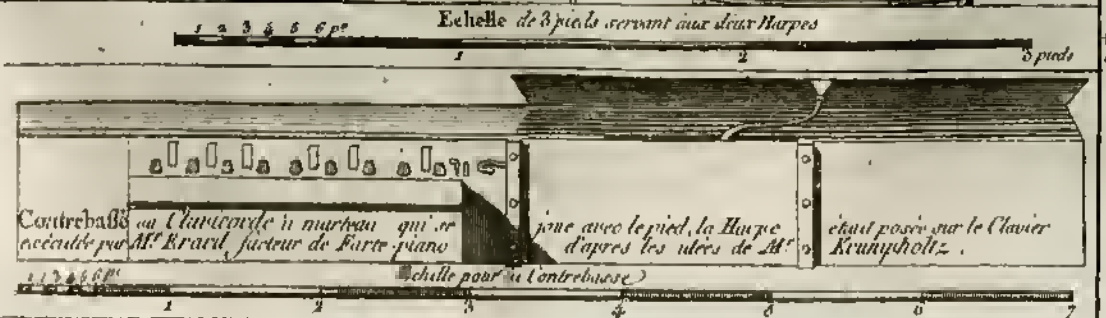 Echelle de 3 pieds servant aux deux Harpes
1 2 3 4 5 6 po
1 2 3 pieds
Contrebasse ou Clavicorde à marteau qui se joue avec le pied, la Harpe était posée sur le Clavier
exécutée par Mr. Erard, facteur de Forte-piano d'apres les idées de Mr. Krumpholtz.
1 2 3 4 5 6 po
Echelle pour la Contrebasse
1 2 3 4 5 6 7